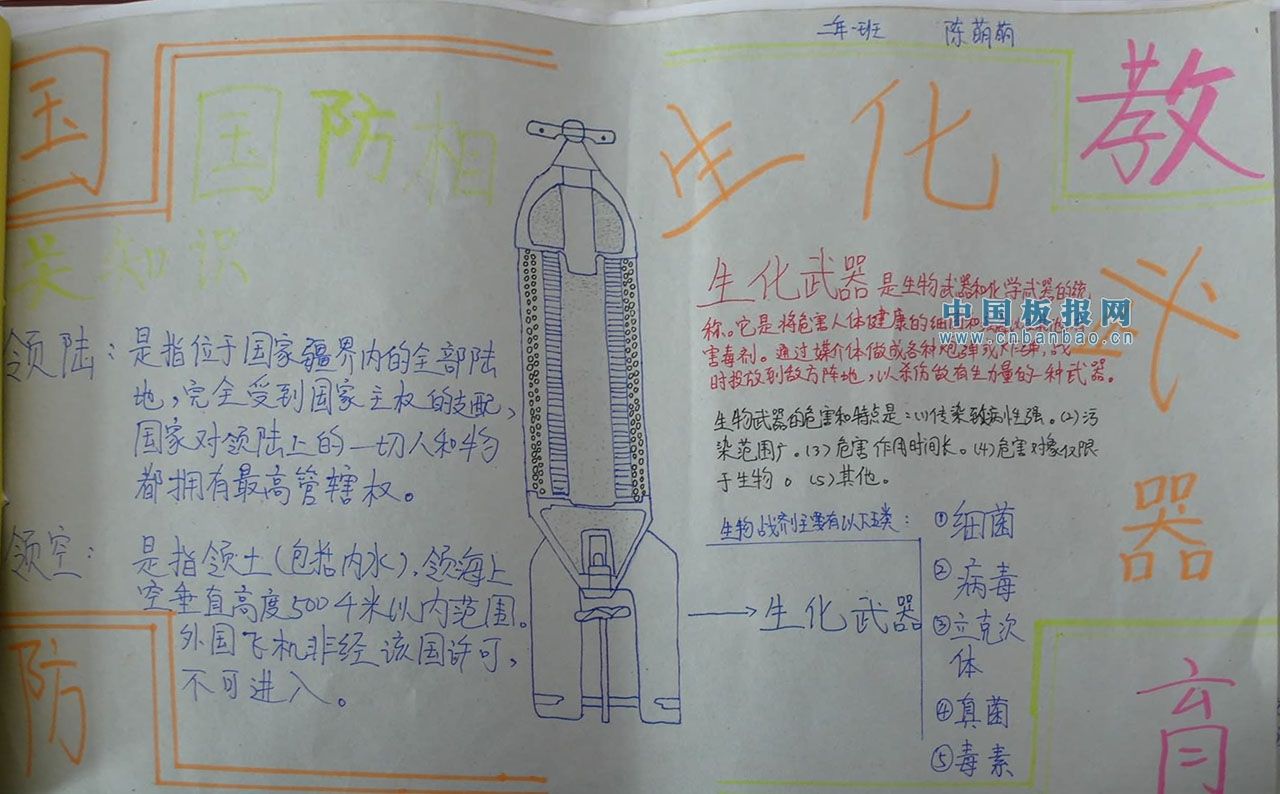 二年一班 陈萌萌
国
防
教
育
国防相
关知识
领陆：是指位于国家疆界内的全部陆
地，完全受到国家主权的支配，
国家对领陆上的一切人和物
都拥有最高管辖权。
领空：是指领土（包括内水）、领海上
空垂直高度500千米以内范围。
外国飞机非经该国许可，
不可进入。
生化
武
器
生化武器是生物武器和化学武器的统
称。它是将危害人体健康的细
害毒剂。通过媒介体做成各种炮弹或
时投放到敌方阵地，以杀伤敌有生力量的一种武器。
中国板报网
www.cnbanbao.cn
生物武器的危害和特点是：(1)传染致病性强。(2)污
染范围广。(3)危害作用时间长。(4)危害对象仅限
于生物。(5)其他。
生物战剂主要有以下五类：
→生化武器
①细菌
②病毒
③立克次
体
④真菌
⑤毒素